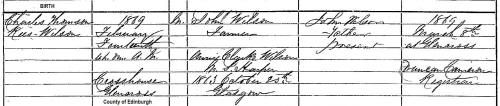 BIRTH
Charles Thomson
Rees-Wilson
1889
February
4h 0m A.M.
Crosshouse
Glencross
M.
John Wilson
Farmer
Annie Clark Wilson
M.S. Harper
October 25th
Glasgow
John Wilson
Father
present
1889
March 8th
at Glencross
Duncan Cameron
Registrar
County of Edinburgh